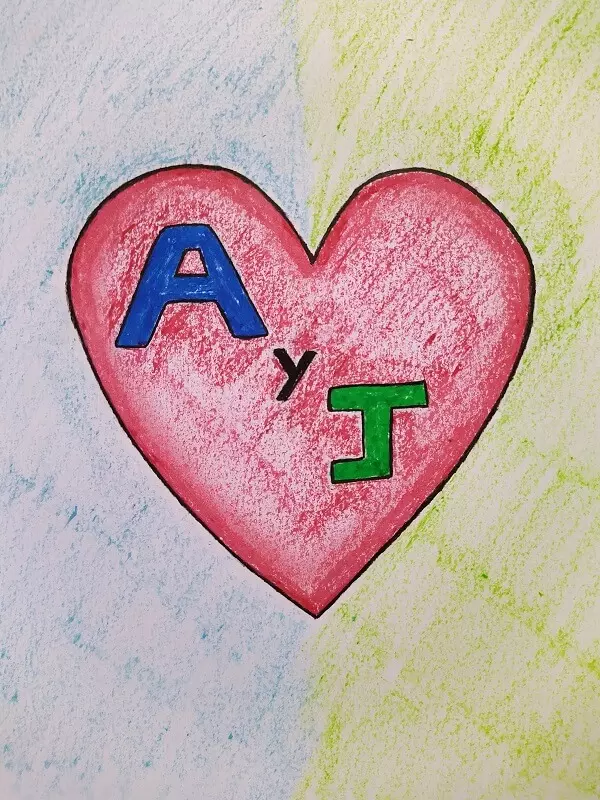 A
y
J